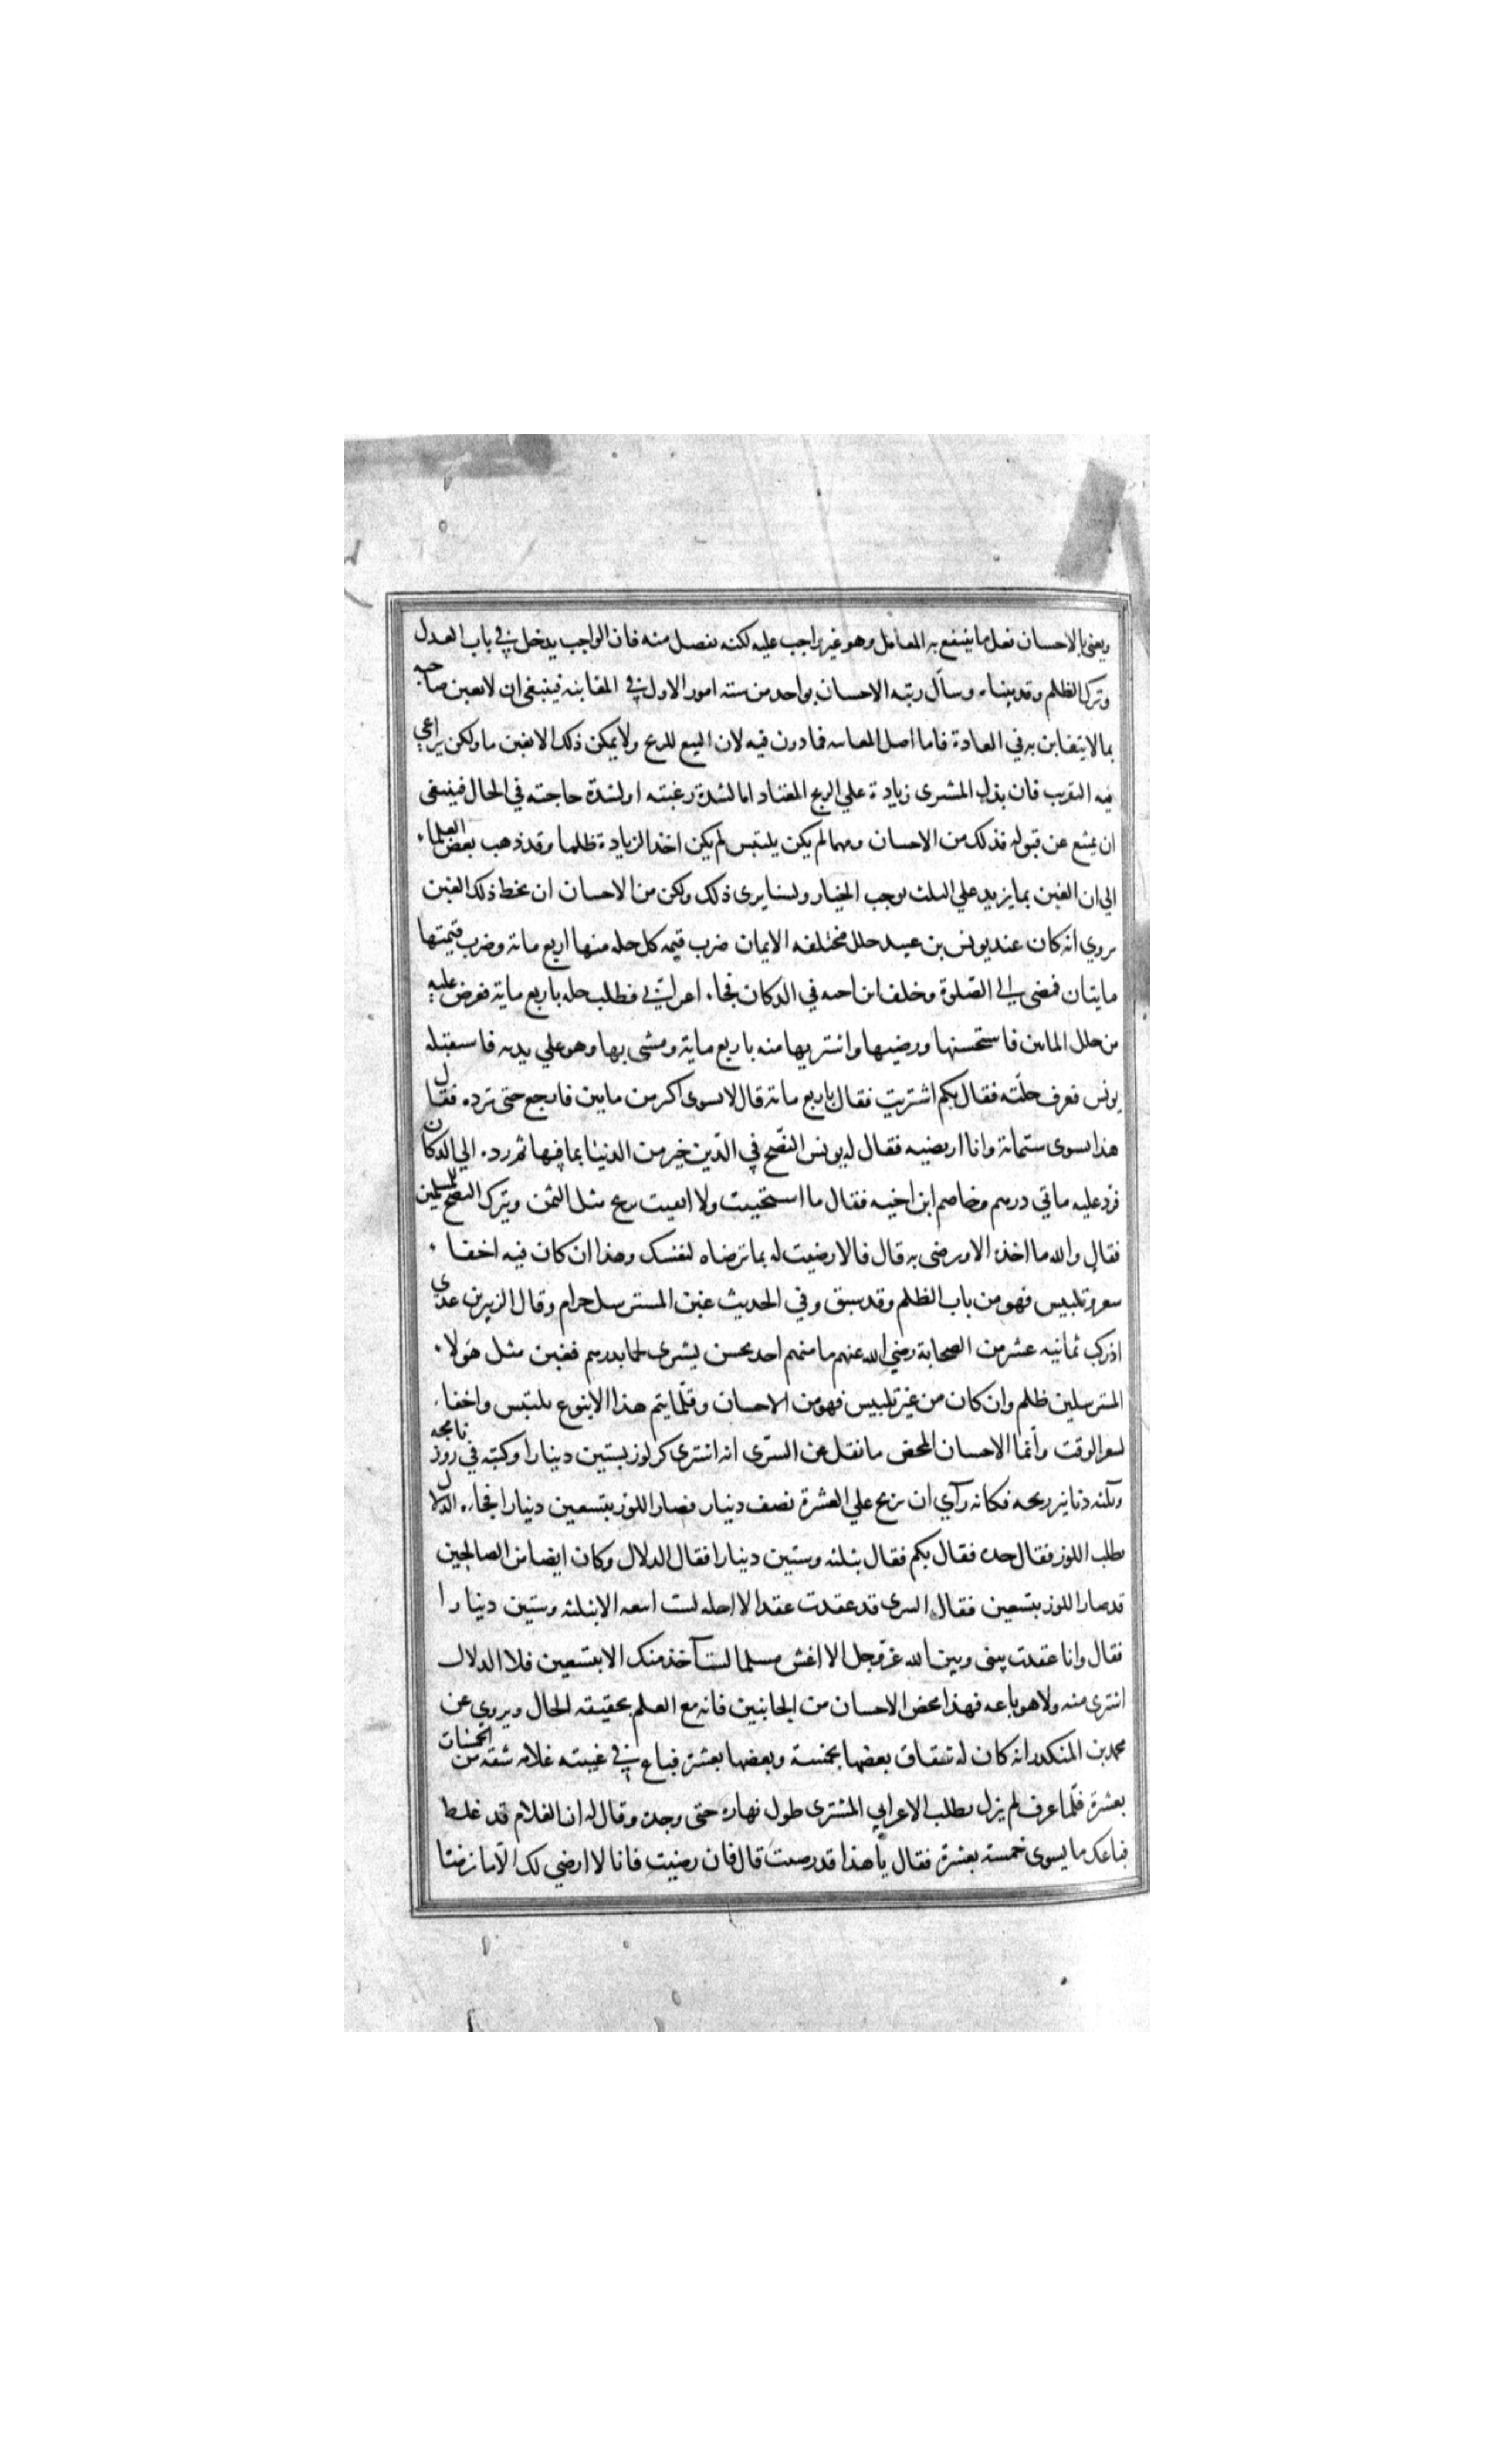 ويعني بالاحسان فعل ما ينتفع به المعامل وهو غير واجب عليه لكنه تفضل منه فان الواجب يدخل في باب العدل
وترك الظلم وقد بينا، وسأل رتبه الاحسان بواحد من سته امور الاول في المغابنه فينبغي ان لا يغبن صاحبه
بما لا يتغابن به في العادة فاما اصل المغابنه فمادون فيه لان البيع للربح ولا يمكن ذلك الا بغبن ما ولكن يراعي
فيه التقريب فان بذل المشتري زيادة علي الربح المعتاد اما لشدة رغبته او لشدة حاجته في الحال فينبغي
ان يمتنع عن قبوله فذلك من الاحسان ومهما لم يكن يلبتس لم يكن اخذ الزيادة ظلما وقد ذهب بعض العلماء
الي ان الغبن بما يزيد علي الثلث يوجب الخيار ولسنا يرى ذلك ولكن من الاحسان ان يحط ذلك الغبن
يروي انه كان عند يونس بن عبيد حلل مختلفه الايمان ضرب قيمه كل حله منها اربع مائة وضرب قيمتها
مايتان فمضى الي الصلوة وخلف ابن اخيه في الدكان فجاء اعرابي فطلب حله باربع ماية فعرض عليه
من حلل المائتين فاستحسنها ورضيها واشتريها منه باربع ماية ومشى بها وهو علي يديه فاستقبله
يونس فعرف حلته فقال بكم اشتريت فقال باربع مائة قال لا يسوى اكثر من مايتين فارجع حتى ترده فقال
هذا يسوى ستمائة وانا ارتضيه فقال له يونس النصح في الدين خير من الدنيا بما فيها ثم رده الي الدكان
فرد عليه مأتي درهم وخاصم ابن اخيه فقال ما استحييت ولا اتقيت تربح مثل الثمن ويترك النصح للمسلمين
فقال والله ما اخذه الا ورضى به قال فالا رضيت له بما ترضاه لنفسك وهذا ان كان فيه اخفاء
سعر وتلبيس فهو من باب الظلم وقد سبق وفي الحديث غبن المسترسل حرام وقال الزبير بن عدي
ادركت ثمانيه عشر من الصحابة رضي الله عنهم ما منهم احد يحسن يشترى لحما بدرهم فغبن مثل هولاء
المسترسلين ظلم وان كان من غير تلبيس فهو من الاحسان وقلما يتم هذا الا بنوع تلبتس واخفاء
لسعر الوقت وانما الاحسان المحض ما نقل عن السري انه اشترى كر لوز بستين دينارا وكتبه في روزنامجه
وثلثه دنانير ربحه فكانه رآي ان يربح علي العشرة نصف دينار فصار اللوز بتسعين دينارا فجاءه الدلال
يطلب اللوز فقال خده فقال بكم فقال بثلثه وستين دينارا فقال الدلال وكان ايضا من الصالحين
قد صار اللوز بتسعين فقال السري قد عقدت عقدا لا احله لست ابيعه الا بثلثه وستين دينارا
فقال وانا عقدت بيني وبين الله عز وجل الا اغش مسلما لست آخذ منك الا بتسعين فلا الدلال
اشترى منه ولا هو باعه فهذا محض الاحسان من الجانبين فانه مع العلم بحقيقه الحال ويروي عن
محمد بن المنكدر انه كان له شقاق بعضها بخمسة وبعضها بعشرة فباع في غيبته غلامه شقه من الخمسيات
بعشرة فلما عرف لم يزل يطلب الاعرابي المشترى طول نهاره حتى وجده وقال له ان الغلام قد غلط
فباعك ما يسوى خمسة بعشرة فقال يا هذا قد رضيت قال فان رضيت فانا لا ارضي لك الا ما نرضا